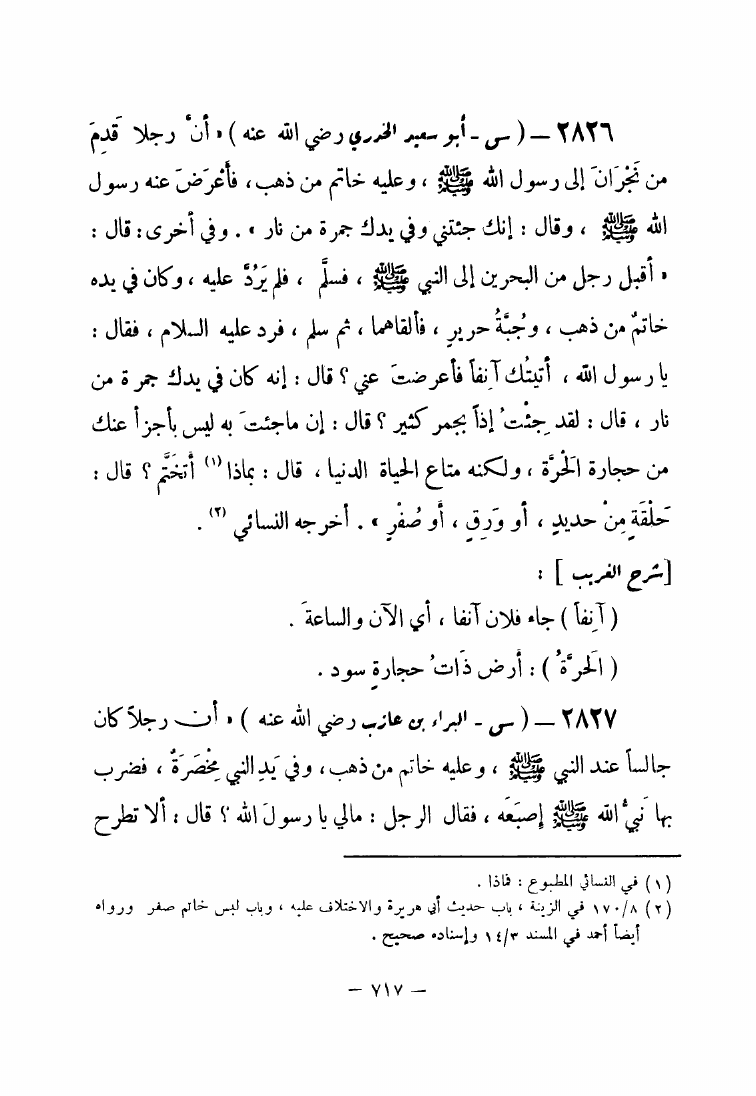 ٢٨٢٦ — ( س - أبو سعيد الخدري رضي الله عنه ) « أنْ رجلا قَدِمَ
من نَجْرَانَ إلى رسول الله ﷺ ، وعليه خاتم من ذهب، فأَعْرَضَ عنه رسول
الله ﷺ ، وقال : إنك جئتني وفي يدك جمرة من نار » . وفي أخرى: قال :
« أقبل رجل من البحرين إلى النبي ﷺ ، فسلَّم ، فلم يَرُدَّ عليه ، وكان في يده
خاتمٌ من ذهب ، وجُبَّةُ حريرٍ ، فألقاهما ، ثم سلم ، فرد عليه السلام ، فقال :
يا رسول الله ، أتيتُك آنِفاً فأعرضتَ عني ؟ قال : إنه كان في يدك جمرة من
نار ، قال : لقد جِئْتُ إذاً بجمر كثير ؟ قال : إن ماجئتَ به ليس بأجزأ عنك
من حجارة الحَرَّة ، ولكنه متاع الحياة الدنيا ، قال : بماذا (١) أَتَخَتَّم ؟ قال :
حَلْقَةٍ مِنْ حديدٍ ، أو وَرِقٍ ، أو صُفْرٍ » . أخرجه النسائي (٢) .
[شرح الغريب ] :
( آنِفاً ) جاء فلان آنفا ، أي الآن والساعةَ .
( الحَرَّةُ ) : أرض ذَاتُ حجارةٍ سود .
٢٨٢٧ — ( س - البراء بن عازب رضي الله عنه ) « أن رجلاً كان
جالساً عند النبي ﷺ ، وعليه خاتم من ذهب، وفي يَدِ النبي مِخْصَرَةٌ ، فضرب
بها نَبيُّ الله ﷺ إصبَعَه ، فقال الرجل : مالي يا رسولَ الله ؟ قال : ألا تطرح
(١) في النسائي المطبوع : فماذا .
(٢) ١٧٠/٨ في الزينة ، باب حديث أبي هريرة والاختلاف عليه ، وباب لبس خاتم صفر ورواه
أيضاً أحمد في المسند ١٤/٣ وإسناده صحيح .
— ٧١٧ —